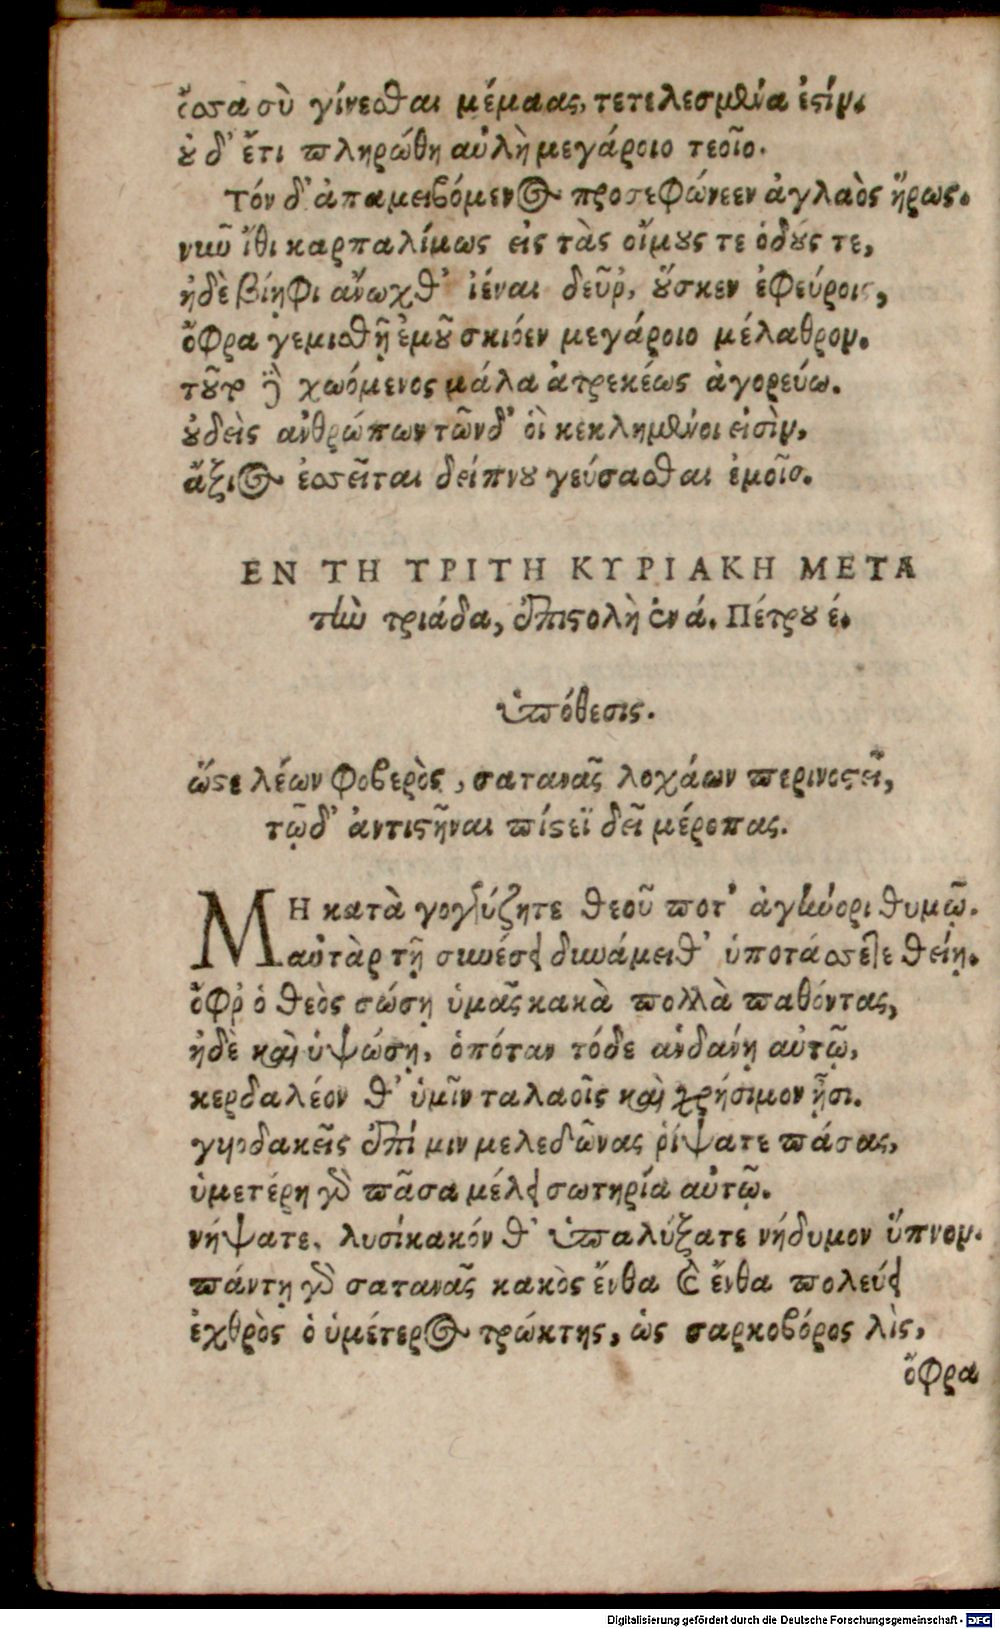 ὅσσα σὺ γίνεσθαι μέμαας, τετελεσμένα ἐστίν.
οὐδ᾽ ἔτι πληρώθη αὐλὴ μεγάροιο τεοῖο.
τόν δ᾽ ἀπαμειβόμενος προσεφώνεεν ἀγλαὸς ἥρως.
νῦν ἴθι καρπαλίμως εἰς τὰς οἴμους τε ὁδούς τε,
ἠδὲ βίηφι ἄνωχθ᾽ ἰέναι δεῦρ, οὕσκεν ἐφεύροις,
ὄφρα γεμισθῇ ἐμοῦ σκιόεν μεγάροιο μέλαθρον.
τοῦτο γὰρ χωόμενος μάλα ἀτρεκέως ἀγορεύω.
οὐδεὶς ἀνθρώπων τῶνδ᾽ οἳ κεκλημένοι εἰσὶν,
ἄξιος ἐσσεῖται δείπνου γεύσασθαι ἐμοῖο.
ΕΝ ΤΗ ΤΡΙΤΗ ΚΥΡΙΑΚΗ ΜΕΤΑ
τὴν τριάδα, ἐπιστολὴ ἐν ά. Πέτρου έ.
ὑπόθεσις.
ὥστε λέων φοβερὸς, σατανᾶς λοχάων περινοστεῖ,
τῷδ᾽ ἀντιστῆναι πίστεϊ δεῖ μέροπας.
ΜΗ κατὰ γογγύζητε θεοῦ ποτ᾽ ἀγήνορι θυμῷ.
αὐτὰρ τῇ συνέσει δυνάμει θ᾽ ὑποτάσσετε θείῃ.
ὄφρ ὁ θεὸς σώσῃ ὑμᾶς κακὰ πολλὰ παθόντας,
ἠδὲ καὶ ὑψώσῃ, ὁπόταν τόδε ἁνδάνῃ αὐτῷ,
κερδαλέον θ᾽ ὑμῖν ταλαοῖς καὶ χρήσιμον ᾖσι.
γηοδακεῖς ἐπί μιν μελεδῶνας ῥίψατε πάσας,
ὑμετέρη γὰρ πᾶσα μέλει σωτηρία αὐτῷ.
νήψατε, λυσίκακόν θ᾽ ὑπαλύξατε νήδυμον ὕπνον.
πάντῃ γὰρ σατανᾶς κακὸς ἔνθα καὶ ἔνθα πολεύει
ἐχθρὸς ὁ ὑμέτερος τρώκτης, ὡς σαρκοβόρος λὶς,
ὄφρα
Digitalisierung gefördert durch die Deutsche Forschungsgemeinschaft - DFG